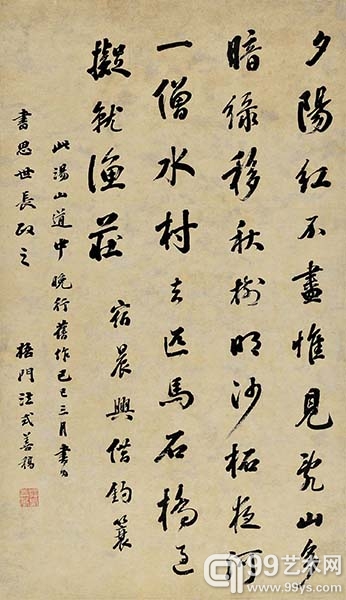 夕陽紅不盡惟見亂山多
暗綠移秋樹明沙夜河
一僧水村去匹馬石橋過
擬就漁莊宿晨興借釣蓑
此湯山道中晚行舊作己巳三月書為
書思世長政之
梧門法式善稿
99艺术网
www.99ys.com